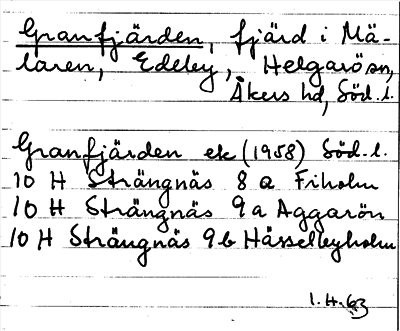 Granfjärden, fjärd i Mä-
laren, Edeby, Helgarö sn,
Åkers hd, Söd. l.
Granfjärden ek (1958) Söd. l.
10 H Strängnäs 8 a Fiholm
10 H Strängnäs 9 a Aggarön
10 H Strängnäs 9 b Hässelbyholm
1.H.63